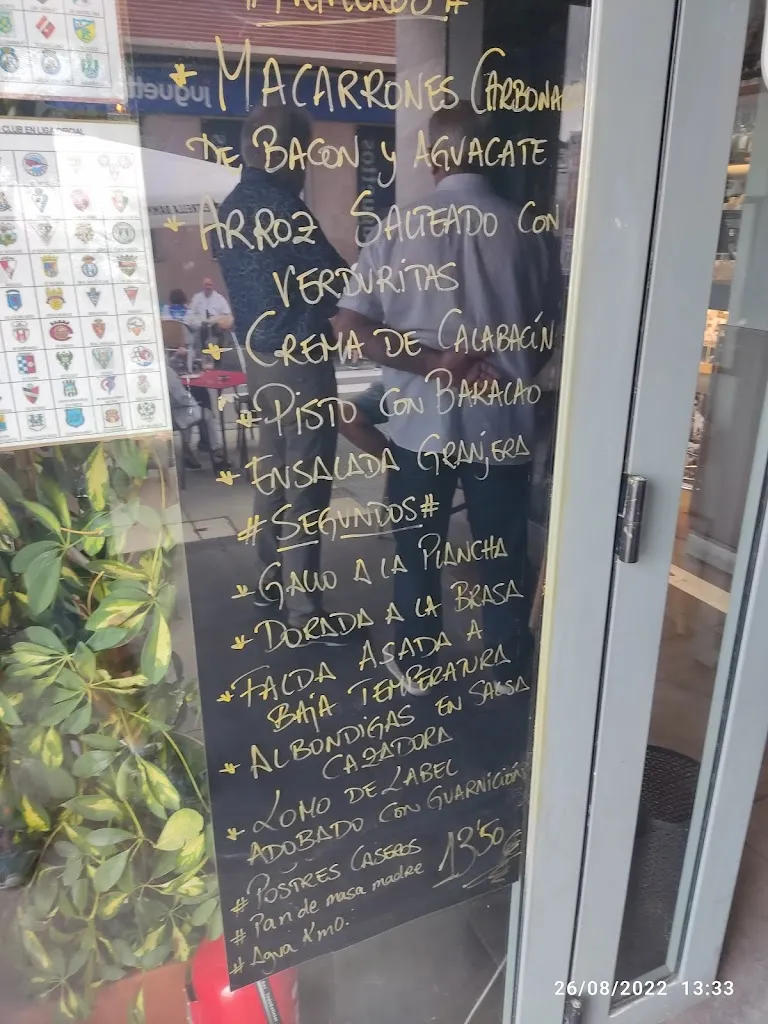 * MACARRONES CARBONA
DE BACON Y AGUACATE
* ARROZ SALTEADO CON
VERDURITAS
* CREMA DE CALABACÍN
* PISTO CON BAKALAO
* ENSALADA GRANJERA
# SEGUNDOS #
* GALLO A LA PLANCHA
* DORADA A LA BRASA
* FALDA ASADA A
BAJA TEMPERATURA
* ALBONDIGAS EN SALSA
CAZADORA
* LOMO DE LABEL
ADOBADO CON GUARNICIÓN
# POSTRES CASEROS
# Pan de masa madre
# Agua Km0.
13'50€
26/08/2022 13:33